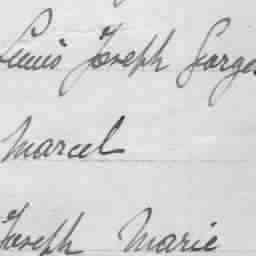 Louis Joseph Georges
Marcel
Joseph Marie